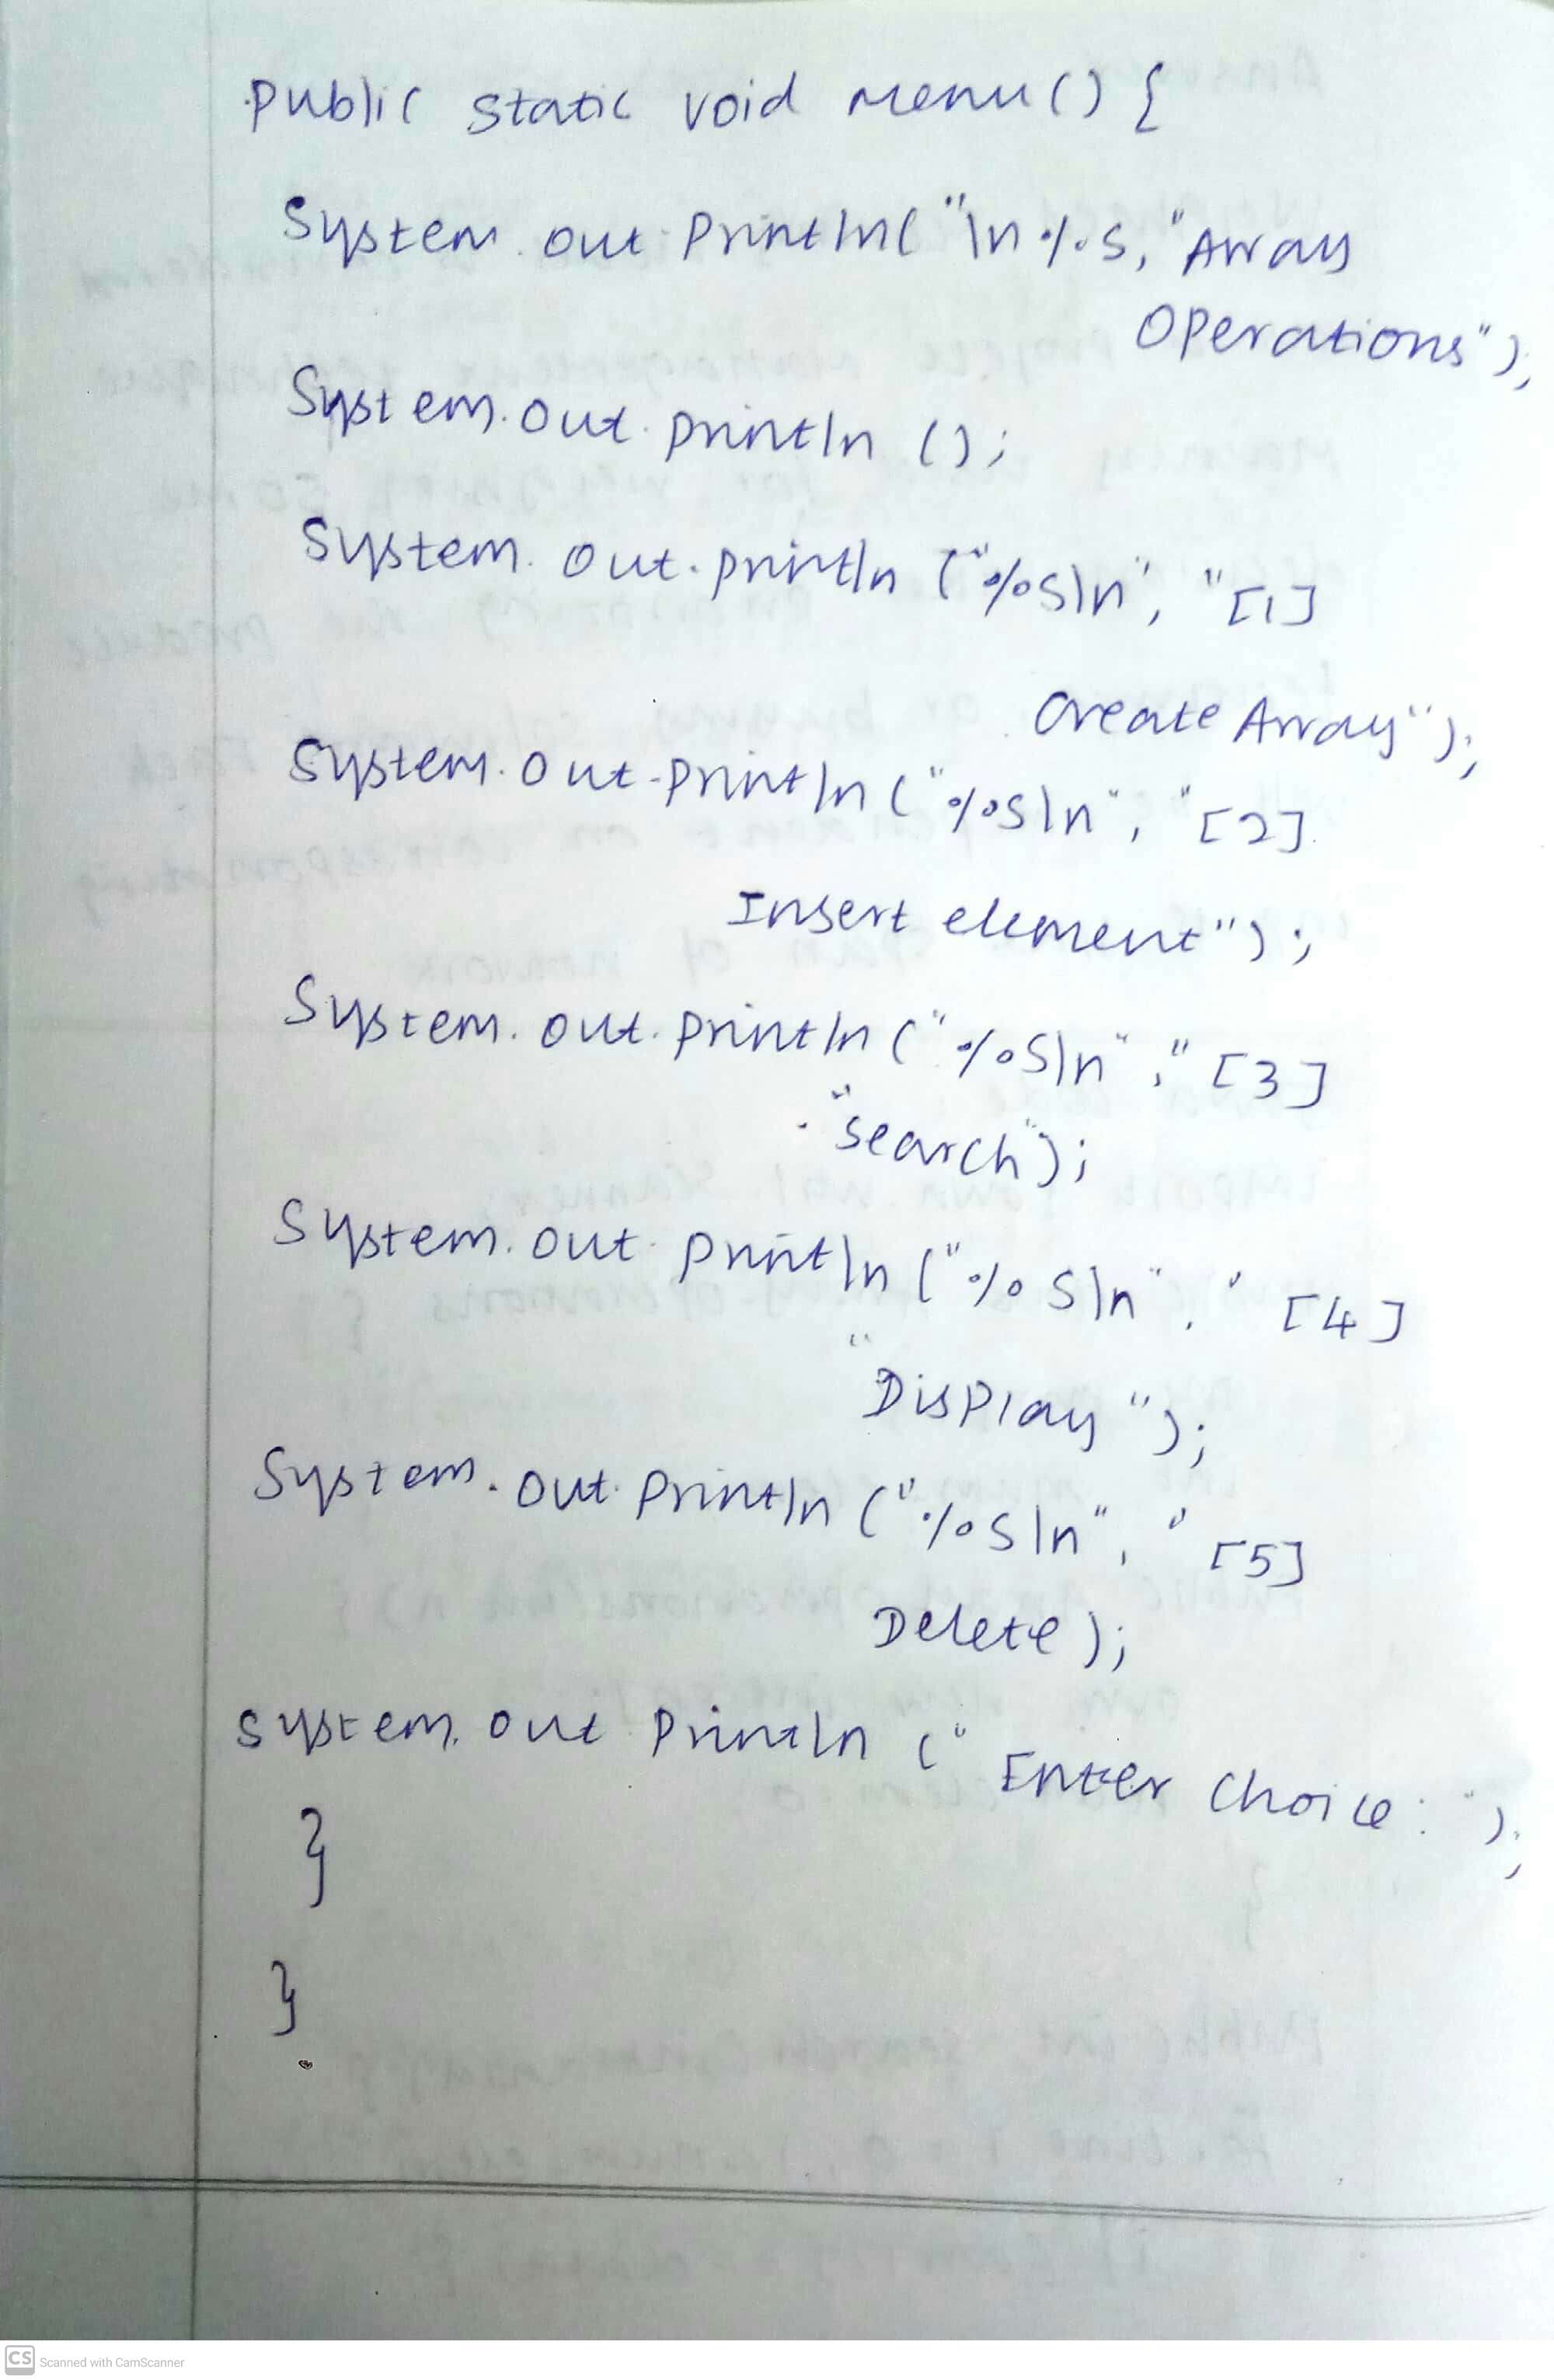 public static void menu() {
System.out.println("\n%s,"Array
Operations");
System.out.println ();
System.out.println ("%s\n", "[1]
Create Array");
System.out.println ("%s\n", "[2]
Insert element");
System.out.println ("%s\n", "[3]
"search");
System.out.println ("%s\n", " [4]
"Display");
System.out.println ("%s\n", " [5]
Delete);
System.out println (" Enter Choice: ");
}
}
CS Scanned with CamScanner